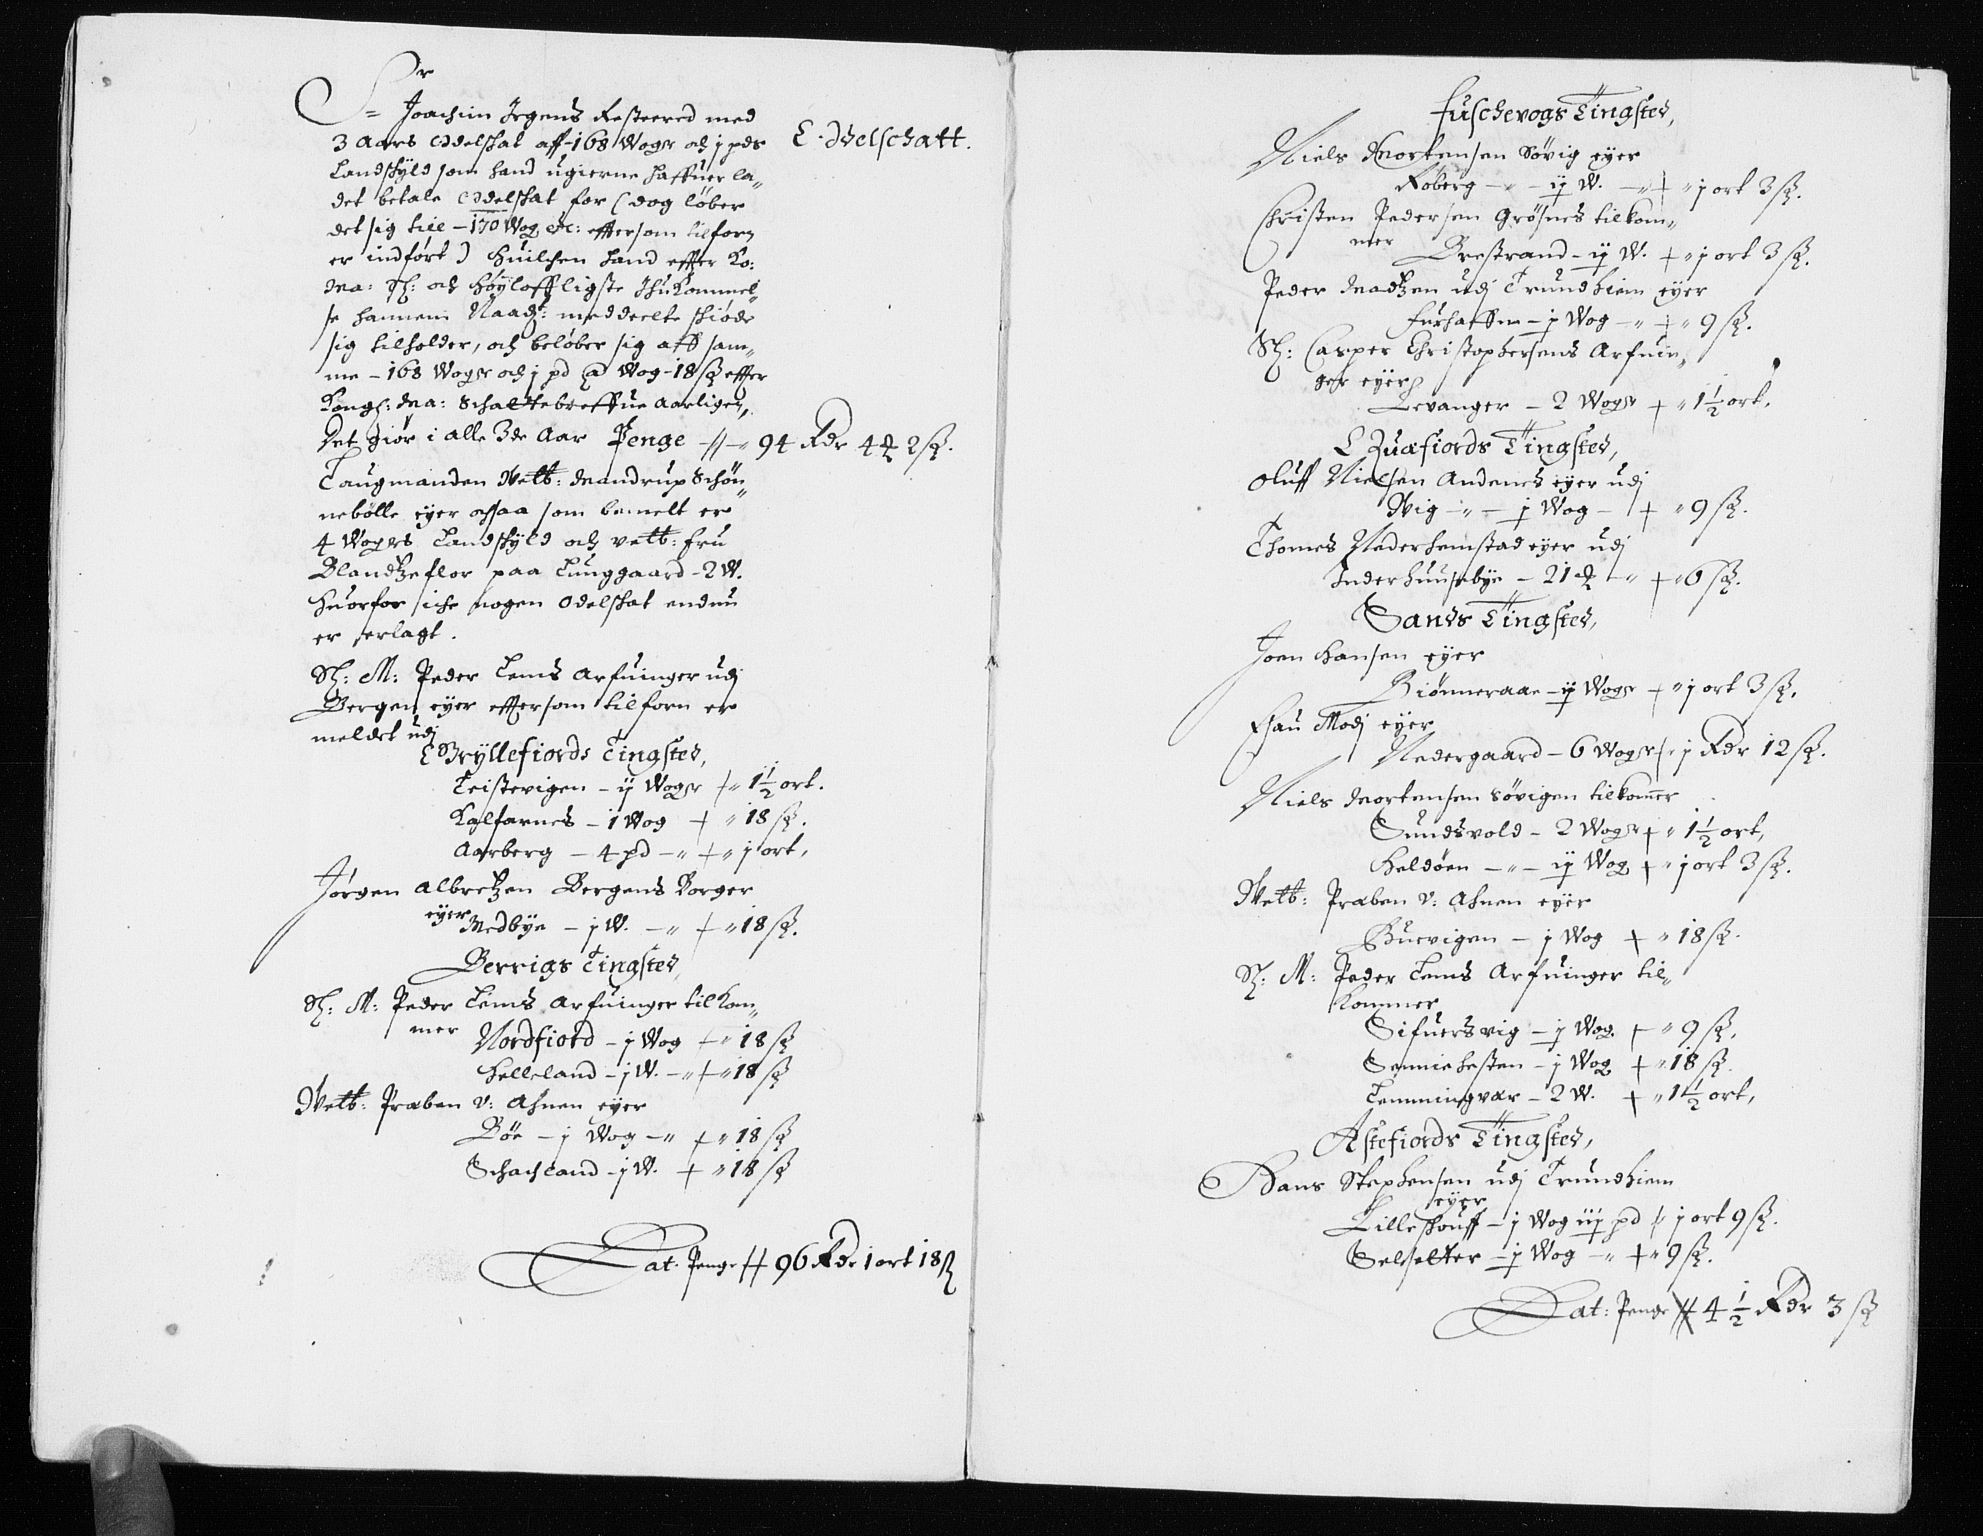 Sr
Joachim Irgens Restered med
3 Aars Oddelskat aff 168 Woger och j pds
Landskyld som hand ugierne haffuer la„
det betale Oddelskat for (dog løber
det sig till 170 Wog etc: effersom tilforn
er indført) huilchen hand effter Ko:
Ma: Sl: och høyloffligste Ihukommel„
se hannem Naadg: meddeelte skiøde
sig tilholder, och beløber sig aff sam„
me - 168 Woger och j pd a Wog - 18 sk effter
Kongl: Ma: Schattebreffue Aarligen,
E. Odelschatt.
Det giør i alle 3de Aar Penge - 94 Rdr 4 ℔ 2 sk.
Laugmanden Welb: Mandrup Schøn„
nebølle eyer ochsaa som bemelt er
4 Wogers Landskyld och velb: fru
Blandtzeflor paa Tunggaard - 2 W.
huorfor iche nogen Odelskat endnu
er erlagt.
Sl: M: Peder Lems Arfuinger udj
Bergen eyer effersom tilforn er
meldet udj
Gryllefiords Tingsted,
Teistevigen - ij Woger + „ 1½ ort.
Kalfarnes - 1 Wog + „ 18 sk.
Aarberg - 4 pd - „ + „ j ort,
Jørgen Albretzen Bergens Borger
eyer Medbye - j W. - „ + „ 18 sk.
Berrigs Tingsted,
Sl: M: Peder Lems Arfuinger tilkom„
mer Nordfiord - j Wog + „ 18 sk
Helleland - j W. - „ + „ 18 sk
Welb: Præben v: Ahnen eyer
Bøe - j Wog - „ + „ 18 sk
Schachland - j W. + „ 18 sk
Lat. Penge 96 Rdr 1 ort 18 sk
Fuschevogs Tingsted,
Niels Mortensen Søvig eyer
Roberg - „ - ij W. - „ + „ j ort 3 sk.
Christen Pedersen Grøsnes tilkom„
mer Brestrand - ij W. + „ j ort 3 sk.
Peder Madtzen udj Trundhiem eyer
Furhaffn - j Wog - „ + „ 9 sk.
Sl: Casper Christophersens Arfuin„
ger eyer
Levanger - 2 Woger + „ 1½ ort.
Quæfiords Tingsted,
Oluff Nielsen Andenes eyer udj
Wig - „ - j Wog - + „ 9 sk.
Thomes Nederhemstad eyer udj
Inderhuusebye - 21 ℔ - „ + „ 6 sk.
Sands Tingsted,
Joen Hansen eyer
Biønneraae - ij Woger + „ j ort 3 sk.
Esau Modj eyer
Nedergaard - 6 Woger „ j Rdr 12 sk.
Niels Mortensen Søvigen tilkom̄er
Sundsvold - 2 Woger + „ 1½ ort,
Heldøen - „ - ij Wog + „ j ort 3 sk.
Welb: Præben v: Ahnen eyer
Buevigen - j Wog + „ 18 sk.
Sl: M: Peder Lems Arfuinger til„
kommer
Sifuersvig - j Wog + „ 9 sk.
Senniehesten - j Wog + „ 18 sk.
Lemmingvær - 2 W. + „ 1½ ort,
Astefiords Tingsted,
Hans Stephensen udj Trundhiem
eyer
Lilleshouff - j Wog iij pd + j ort 9 sk.
Selsetter - j Wog - „ + „ 9 sk.
Lat: Penge 4½ Rdr 3 sk